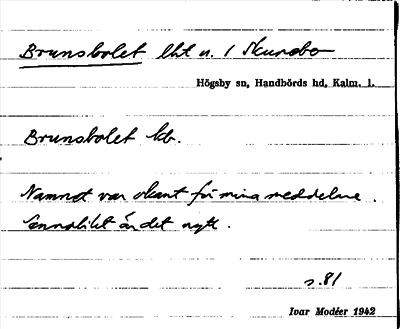 Brunsbolet lht u. 1 Skuruebo
Högsby sn, Handbörds hd, Kalm. l.
Brunsbolet kb.
Namnet var okänt för mina meddelare.
Sannolikt är det nytt.
s. 81
Ivar Modéer 1942